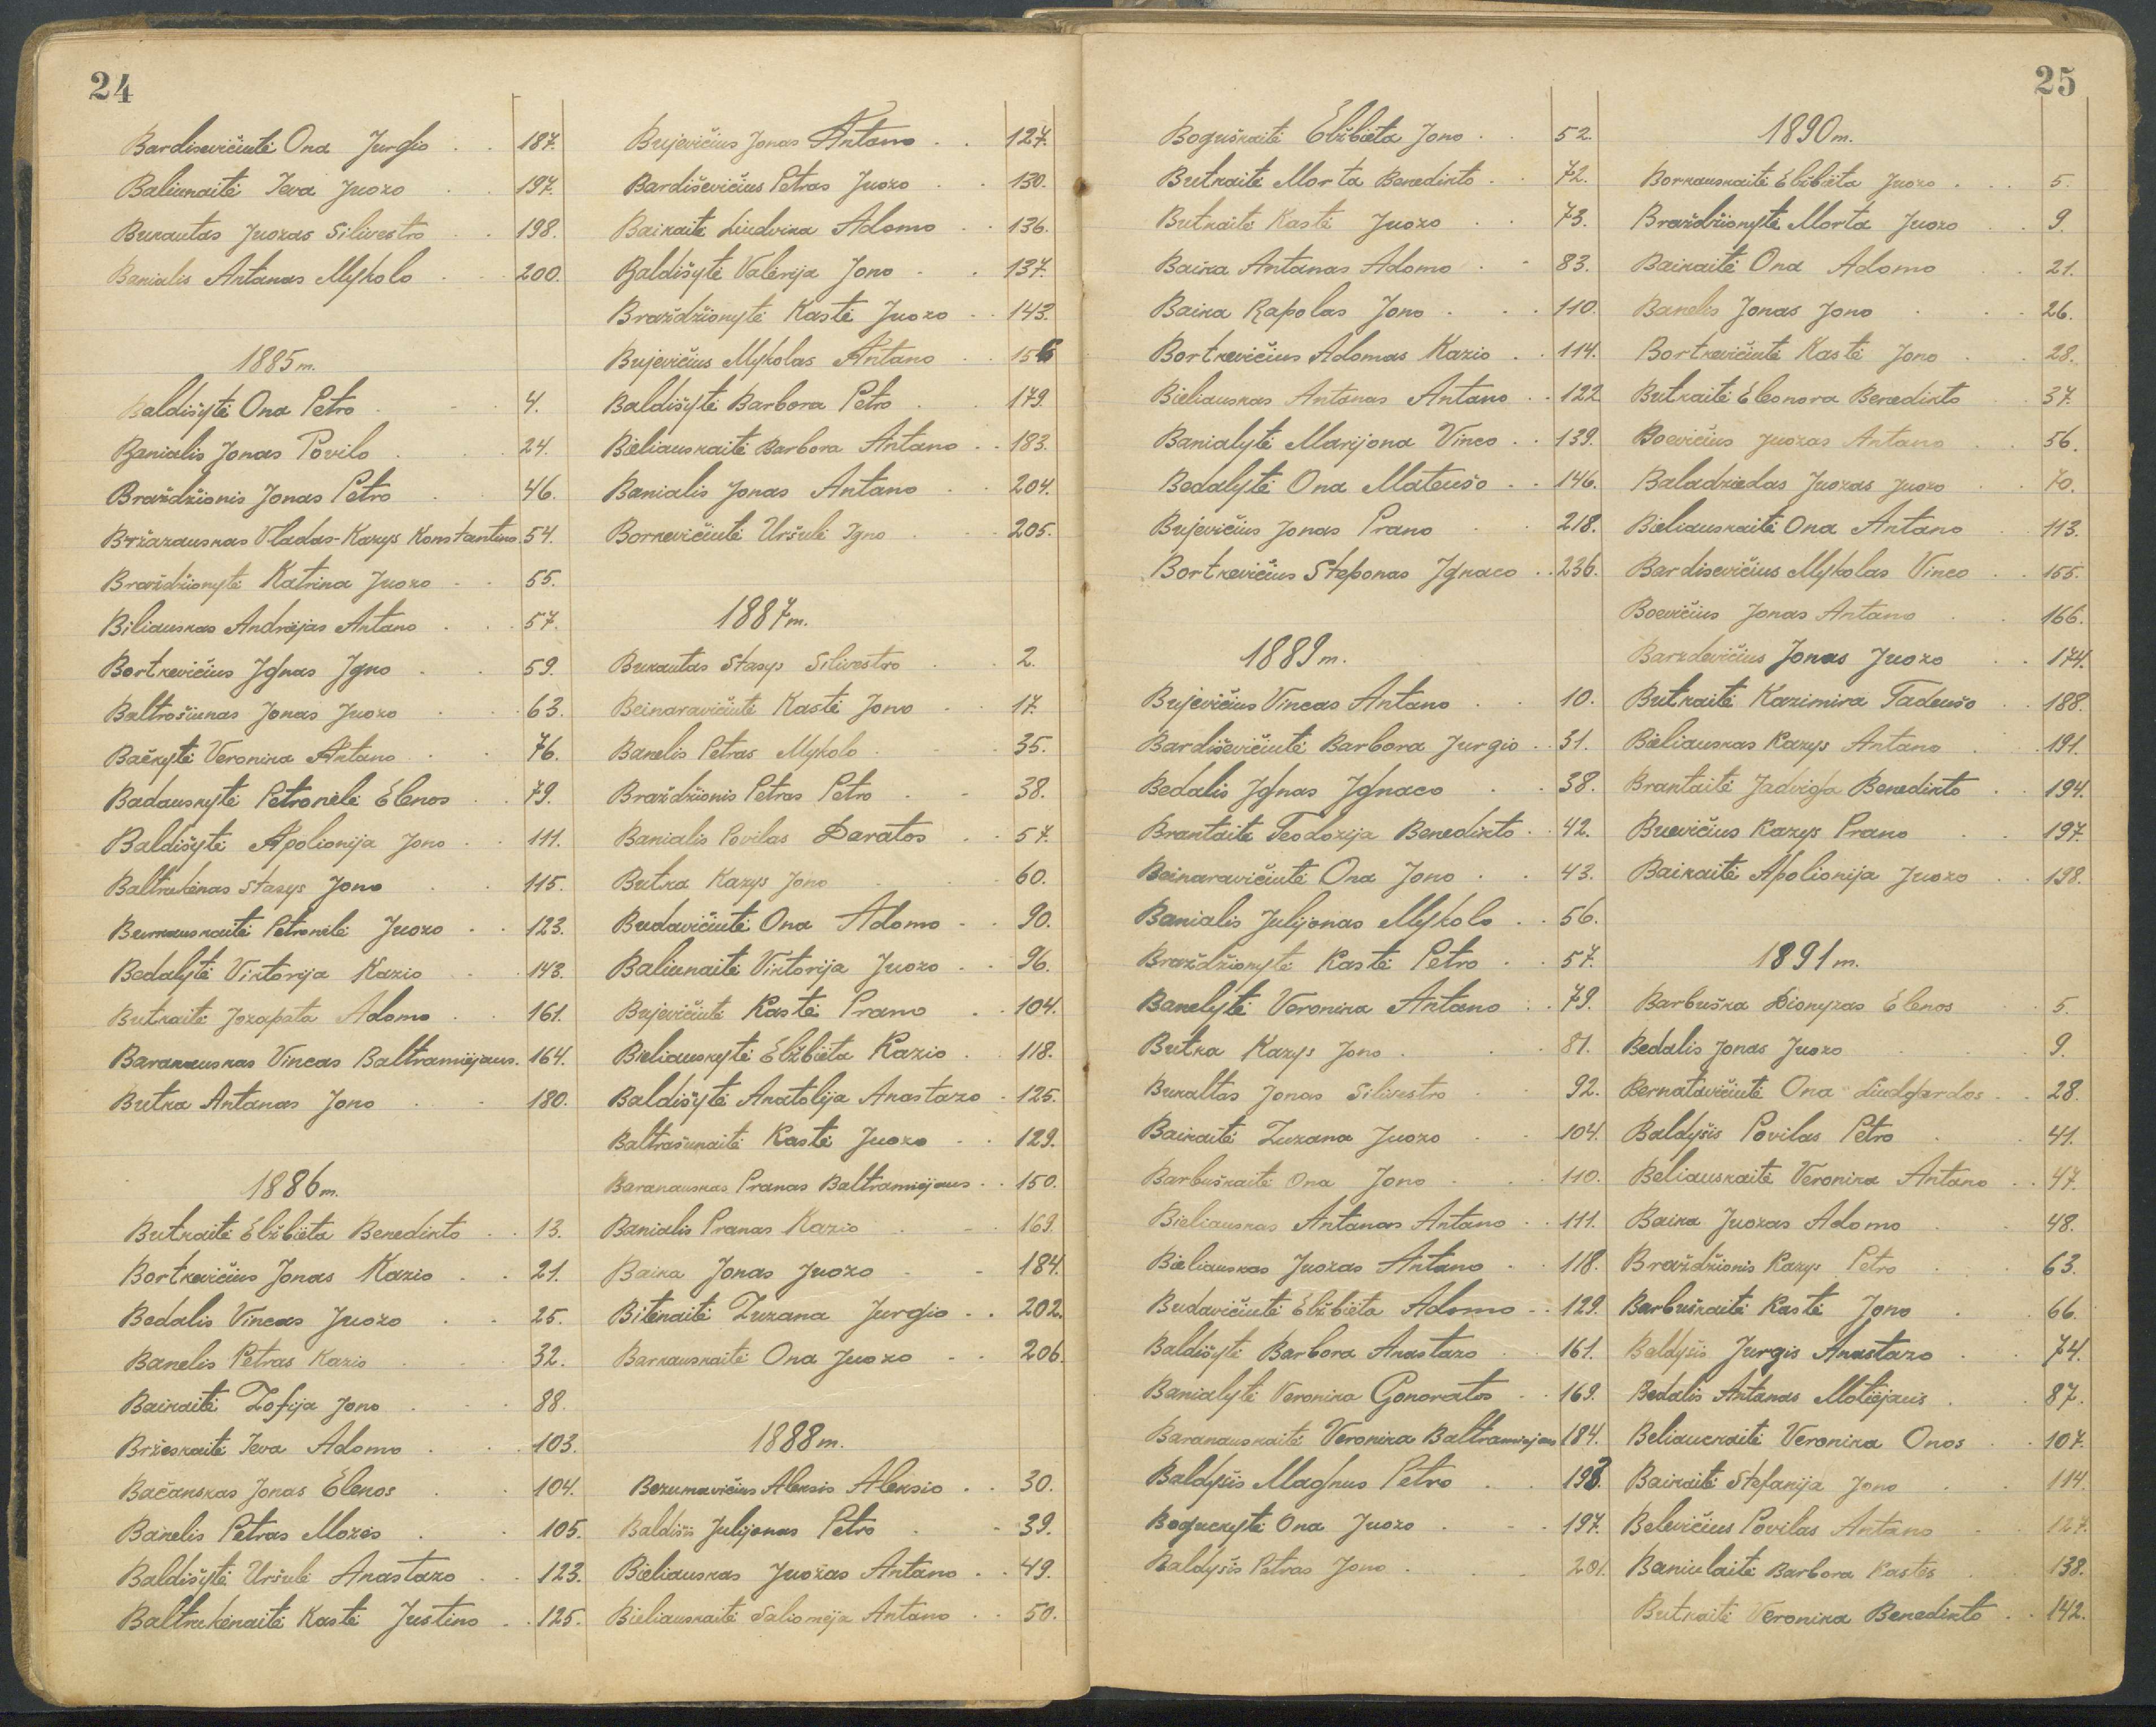 24
Bardisevičiutė Ona Jurgio . . 187.
Baliunaitė Ieva Juozo . . 197.
Bukautas Juozas Silivestro . . 198.
Banialis Antanas Mykolo . . 200.
1885 m.
Baldišytė Ona Petro . . 4.
Banialis Jonas Povilo . . 24.
Braždžionis Jonas Petro . . 46.
Bržazauskas Vladas-Kazys Konstantino 54.
Braždžionytė Katrina Juozo . . 55.
Biliauskas Andriejas Antano . . 57.
Bortkevičius Ignas Igno . . 59.
Baltrošiunas Jonas Juozo . . 63.
Bačkytė Veronika Antano . . 76.
Badauskytė Petronėlė Elenos . . 79.
Baldišytė Apolionija Jono . . 111.
Baltrukėnas Stasys Jono . . 115.
Petronėlė Juozo . . 123.
Bedalytė Viktorija Kazio . . 143.
Butkaitė Jozapata Adomo . . 161.
Baranauskas Vincas Baltramiejaus. 164.
Butka Antanas Jono . . 180.
1886 m.
Butkaitė Elžbieta Benedikto . . 13.
Bortkevičius Jonas Kazio . . 21.
Bedalis Vincas Juozo . . 25.
Banelis Petras Kazio . . 32.
Baikaitė Zofija Jono . . 88.
Bržeskaitė Ieva Adomo . . 103.
Bačanskas Jonas Elenos . . 104.
Banelis Petras Mozės . . 105.
Baldišytė Uršulė Anastazo . . 123.
Baltrukėnaitė Kastė Justino . . 125.
Bujevičius Jonas Antano . . 127.
Bardiševičius Petras Juozo . . 130.
Baikaitė Liudvika Adomo . . 136.
Baldišytė Valėrija Jono . . 137.
Braždžionytė Kastė Juozo . . 143.
Bujevičius Mykolas Antano . . 156
Baldišytė Barbora Petro . . 179.
Bieliauskaitė Barbora Antano . . 183.
Banialis Jonas Antano . . 204.
Borkevičiutė Uršulė Igno . . 205.
1887 m.
Bukautas Stasys Silivestro . . 2.
Beinaravičiutė Kastė Jono . . 17.
Banelis Petras Mykolo . . 35.
Braždžionis Petras Petro . . 38.
Banialis Povilas Daratos . . 57.
Butka Kazys Jono . . 60.
Budavičiutė Ona Adomo . . 90.
Baliunaitė Viktorija Juozo . . 96.
Bujevičiutė Kastė Prano . . 104.
Bieliauskytė Elžbieta Kazio . . 118.
Baldišytė Anatolija Anastazo . 125.
Baltrašunaitė Kastė Juozo . . 129.
Baranauskas Pranas Baltramiejaus . . 150.
Banialis Pranas Kazio . . 169.
Baika Jonas Juozo . . 184.
Bitėnaitė Zuzana Jurgio . . 202.
Barkauskaitė Ona Juozo . . 206.
1888 m.
Bezumavičius Aleksis Aleksio . . 30.
Baldišis Julijonas Petro . . 39.
Bieliauskas Juozas Antano . . 49.
Bieliauskaitė Saliomėja Antano . . 50.
25
Boguškaitė Elžbieta Jono . . 52.
Butkaitė Morta Benedikto . . 72.
Butkaitė Kastė Juozo . . 73.
Baika Antanas Adomo . . 83.
Baika Rapolas Jono . . 110.
Bortkevičius Adomas Kazio . . 114.
Bieliauskas Antanas Antano . . 122
Banialytė Marijona Vinco . . 139.
Bedalytė Ona Mateušo . . 146.
Bujevičius Jonas Prano . . 218.
Bortkevičius Steponas Ignaco . . 236.
1889 m.
Bujevičius Vincas Antano . . 10.
Bardiševičiutė Barbora Jurgio . . 31.
Bedalis Ignas Ignaco . . 38.
Brantaitė Teodozija Benedikto . . 42.
Beinaravičiutė Ona Jono . . 43.
Banialis Julijonas Mykolo . . 56.
Braždžionytė Kastė Petro . . 57.
Banelytė Veronika Antano . . 79.
Butka Kazys Jono . . 81.
Bukaltas Jonas Silivestro . . 92.
Baikaitė Zuzana Juozo . . 104.
Barbuškaitė Ona Jono . . 110.
Bieliauskas Antanas Antano . . 111.
Bieliauskas Juozas Antano . . 118.
Budavičiutė Elžbieta Adomo . . 129.
Baldišytė Barbora Anastazo . . 161.
Banialytė Veronika Gonoratos . . 169.
Baranauskaitė Veronika Baltramiejaus 184.
Baldyšis Magnus Petro . . 193.
Ona Juozo . . 197.
Baldyšis Petras Jono . . 201.
1890 m.
Borkauskaitė Elžbieta Juozo . . 5.
Braždžionytė Morta Juozo . . 9.
Baikaitė Ona Adomo . . 21.
Banelis Jonas Jono . . 26.
Bortkevičiutė Kastė Jono . . 28.
Butkaitė Eleonora Benedikto . . 37.
Boevičius Juozas Antano . . 56.
Baladžiedas Juozas Juozo . . 70.
Bieliauskaitė Ona Antano . . 113.
Bardisevičius Mykolas Vinco . . 155.
Boevičius Jonas Antano . . 166.
Barzdevičius Jonas Juozo . . 174.
Butkaitė Kazimira Tadeušo . . 188.
Bieliauskas Kazys Antano . . 191.
Brantaitė Jadvyga Benedikto . . 194.
Buevičius Kazys Prano . . 197.
Baikaitė Apolionija Juozo . . 198.
1891 m.
Barbuška Dionyzas Elenos . . 5.
Bedalis Jonas Juozo . . 9.
Bernatavičiutė Ona Liudgardos . . 28.
Baldyšis Povilas Petro . . 41.
Beliauskaitė Veronika Antano . . 47.
Baika Juozas Adomo . . 48.
Braždžionis Kazys Petro . . 63.
Barbuškaitė Kastė Jono . . 66.
Baldyšis Jurgis Anastazo . . 74.
Bedalis Antanas Motiejaus . . 87.
Beliauckaitė Veronika Onos . . 107.
Baikaitė Stefanija Jono . . 114.
Belevičius Povilas Antano . . 127.
Baniulaitė Barbora Kastės . . 138.
Butkaitė Veronika Benedikto . . 142.